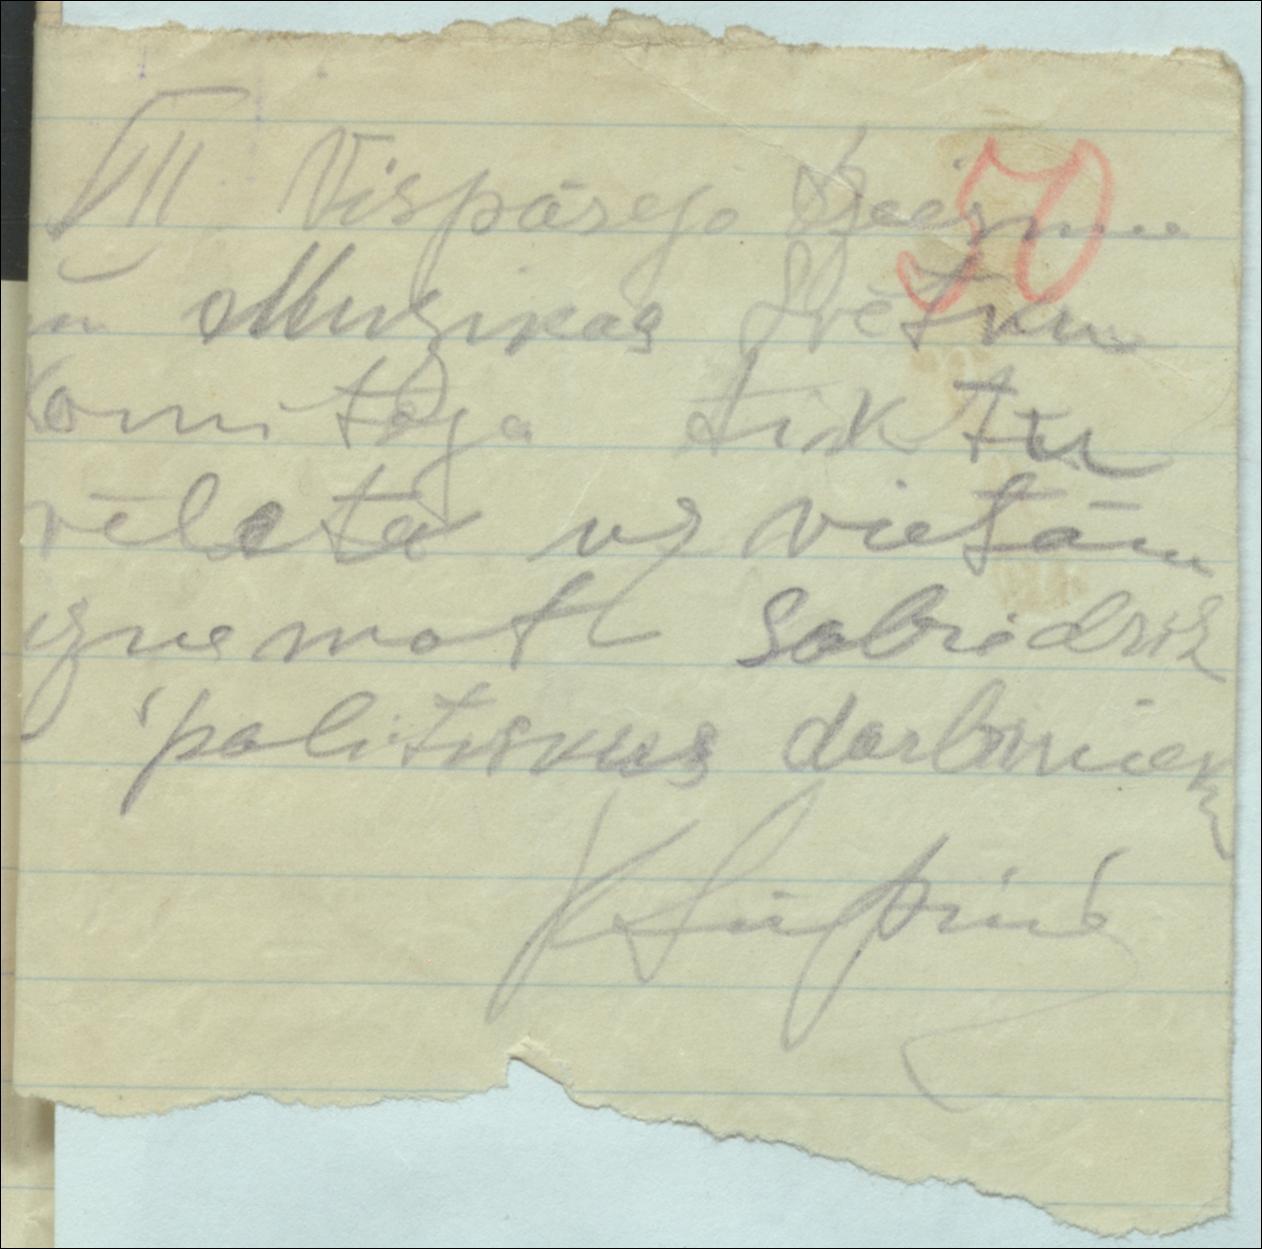 50
VII Vispārejo Dzeesmu
un Muzikas Svētku
Komiteja tiktu
vēlēta uz vietām
izņemot Sabiedrisk
politiskus darbiniek